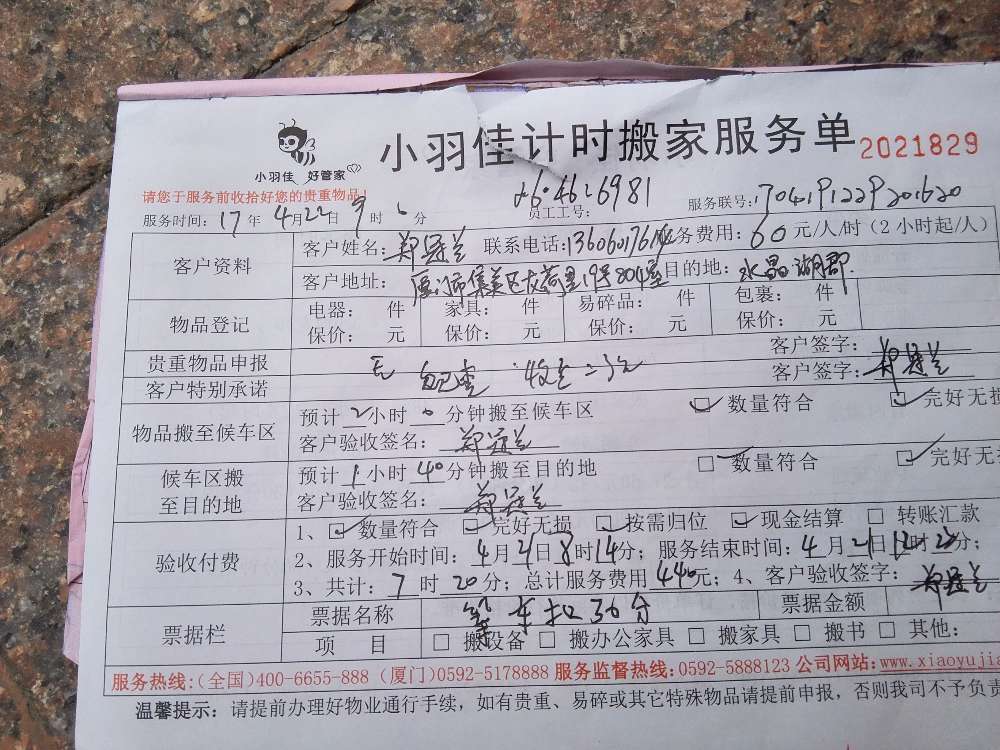 小羽佳计时搬家服务单 2021829
小羽佳 好管家
请您于服务前收拾好您的贵重物品!
26.46.6981
服务时间: 17年4月22日9时 分 员工工号: 服务联号:
客户资料 客户姓名: 郑冠兰 联系电话: 服务费用: 60元/人/时(2小时起/人)
客户地址: 厦门市集美区 里19号804室 目的地: 水晶湖郡
物品登记 电器: 件 家具: 件 易碎品: 件 包裹: 件
保价: 元 保价: 元 保价: 元 保价: 元
贵重物品申报 无 客户签字:
客户特别承诺 客户签字: 郑冠兰
物品搬至候车区 预计2小时0分钟搬至候车区 数量符合 完好无损
客户验收签名: 郑冠兰
候车区搬至目的地 预计1小时40分钟搬至目的地 数量符合 完好无
客户验收签名: 郑冠兰
验收付费 1、数量符合 完好无损 按需归位 现金结算 转账汇款
2、服务开始时间: 4月21日8时14分; 服务结束时间: 4月21日12时20分;
3、共计: 7时20分; 总计服务费用440元; 4、客户验收签字: 郑冠兰
票据栏 票据名称 等车扣36分 票据金额
项 目 搬设备 搬办公家具 搬家具 搬书 其他:
服务热线:(全国)400-6655-888 (厦门)0592-5178888 服务监督热线:0592-5888123 公司网站:www.xiaoyujia
温馨提示: 请提前办理好物业通行手续, 如有贵重、易碎或其它特殊物品请提前申报, 否则我司不予负责